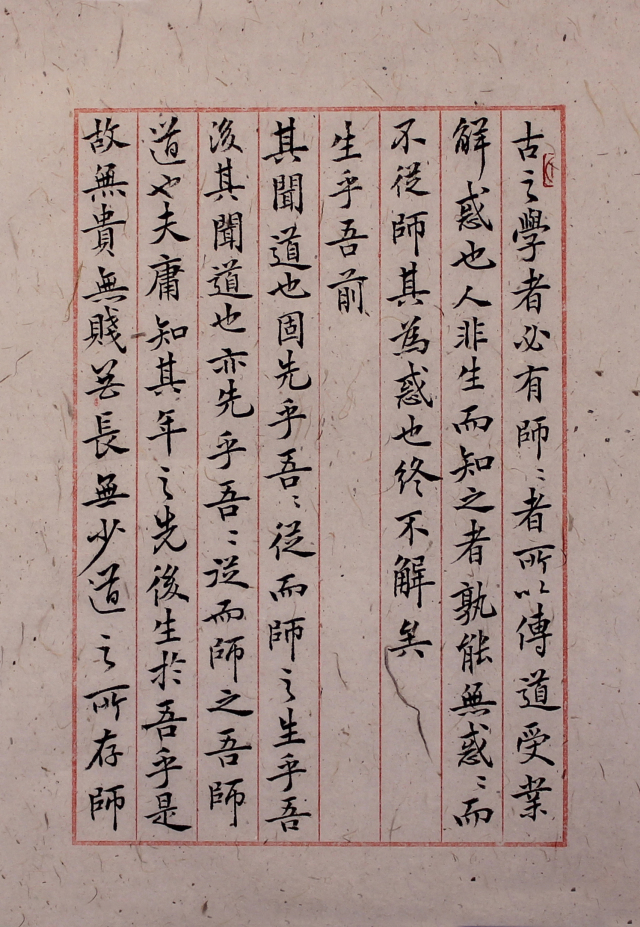 古之學者必有師〻者所以傳道受業
解惑也人非生而知之者孰能無惑〻而
不從師其為惑也終不解矣
生乎吾前
其聞道也固先乎吾〻從而師之生乎吾
後其聞道也亦先乎吾〻從而師之吾師
道也夫庸知其年之先後生於吾乎是
故無貴無賤無長無少道之所存師